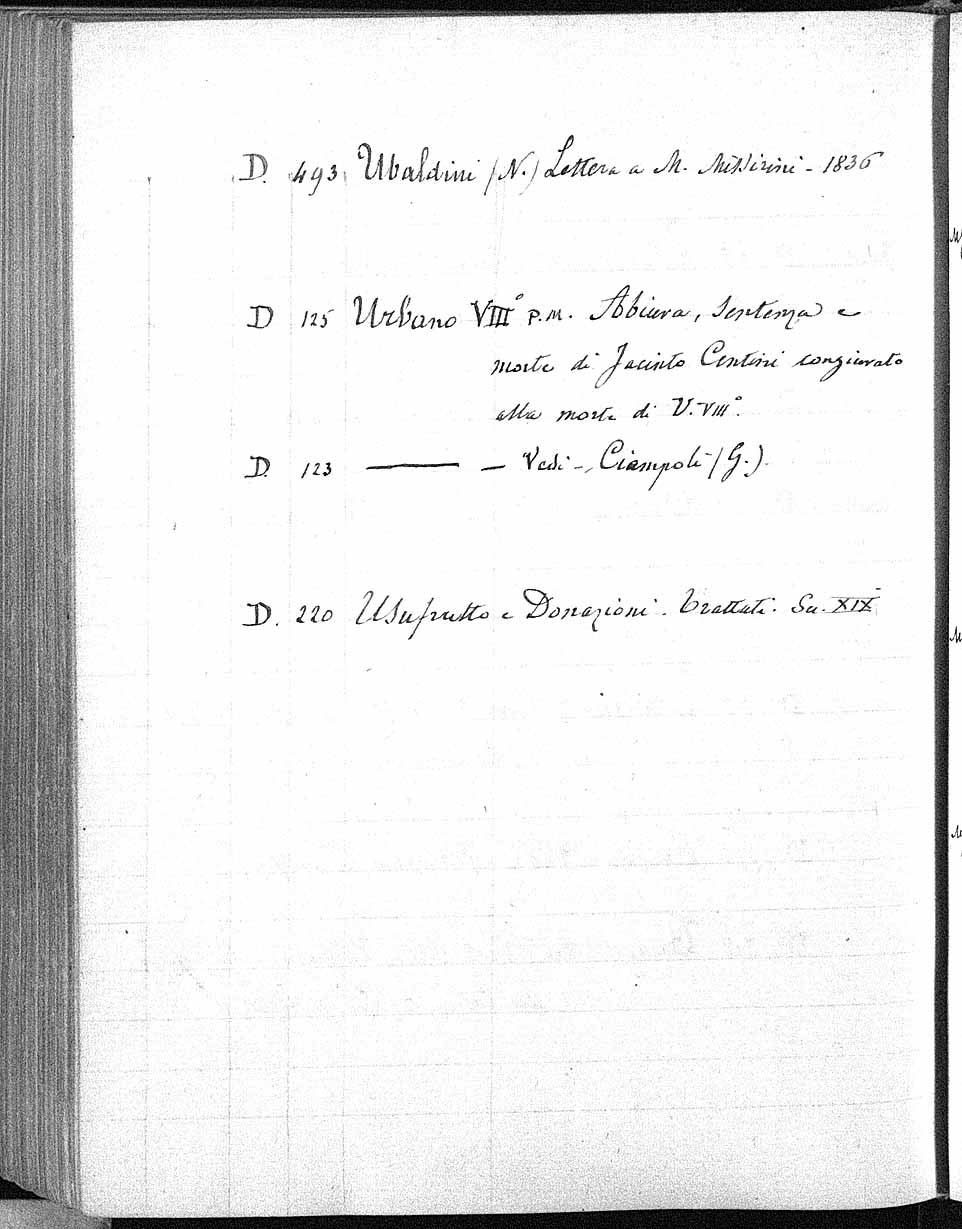 D. 493 Ubaldini (N.) Lettera a M. Missirini - 1836
D 125 Urbano VIII° P.M. Abiura, Sentenza e
morte di Jacinto Centini congiurato
alla morte di V. VIII°.
D. 123 ——— — Vedi -, Ciampoli (G.).
D. 220 Usufrutto e Donazioni. Trattati. Sec. XIX